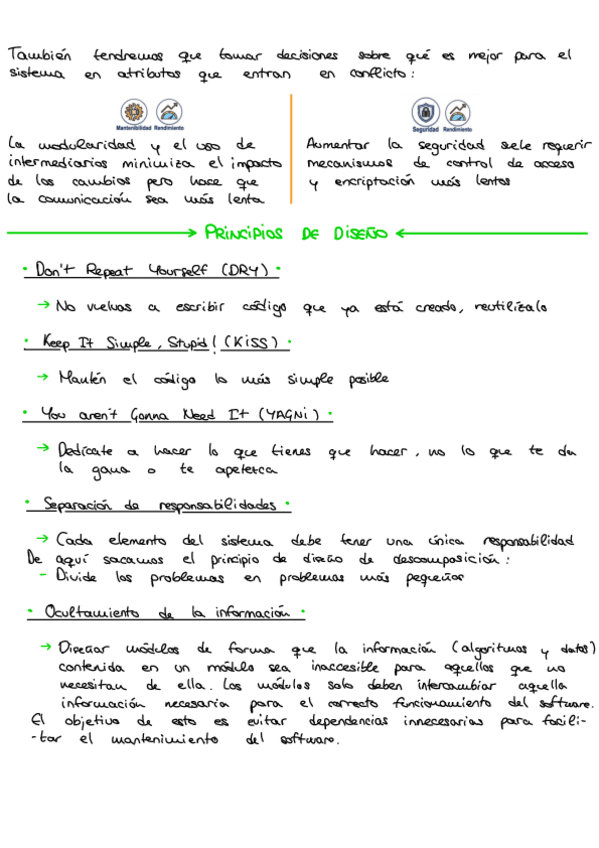 También tendremos que tomar decisiones sobre qué es mejor para el
sistema en atributos que entran en conflicto:
Mantenibilidad Rendimiento
La modularidad y el uso de
intermediarios minimiza el impacto
de los cambios pero hace que
la comunicación sea más lenta
Seguridad Rendimiento
Aumentar la seguridad suele requerir
mecanismos de control de acceso
y encriptación más lentos
PRINCIPIOS DE DISEÑO
• Don't Repeat Yourself (DRY) •
→ No vuelvas a escribir código que ya está creado, reutilízalo
• Keep It Simple, Stupid! (KISS) •
→ Mantén el código lo más simple posible
• You aren't Gonna Need It (YAGNI) •
→ Dedícate a hacer lo que tienes que hacer, no lo que te da
la gana o te apetezca
• Separación de responsabilidades •
→ Cada elemento del sistema debe tener una única responsabilidad
De aquí sacamos el principio de diseño de descomposición:
- Divide los problemas en problemas más pequeños
• Ocultamiento de la información •
→ Diseñar módulos de forma que la información (algoritmos y datos)
contenida en un módulo sea inaccesible para aquellos que no
necesitan de ella. Los módulos solo deben intercambiar aquella
información necesaria para el correcto funcionamiento del software.
El objetivo de esto es evitar dependencias innecesarias para facili-
-tar el mantenimiento del software.